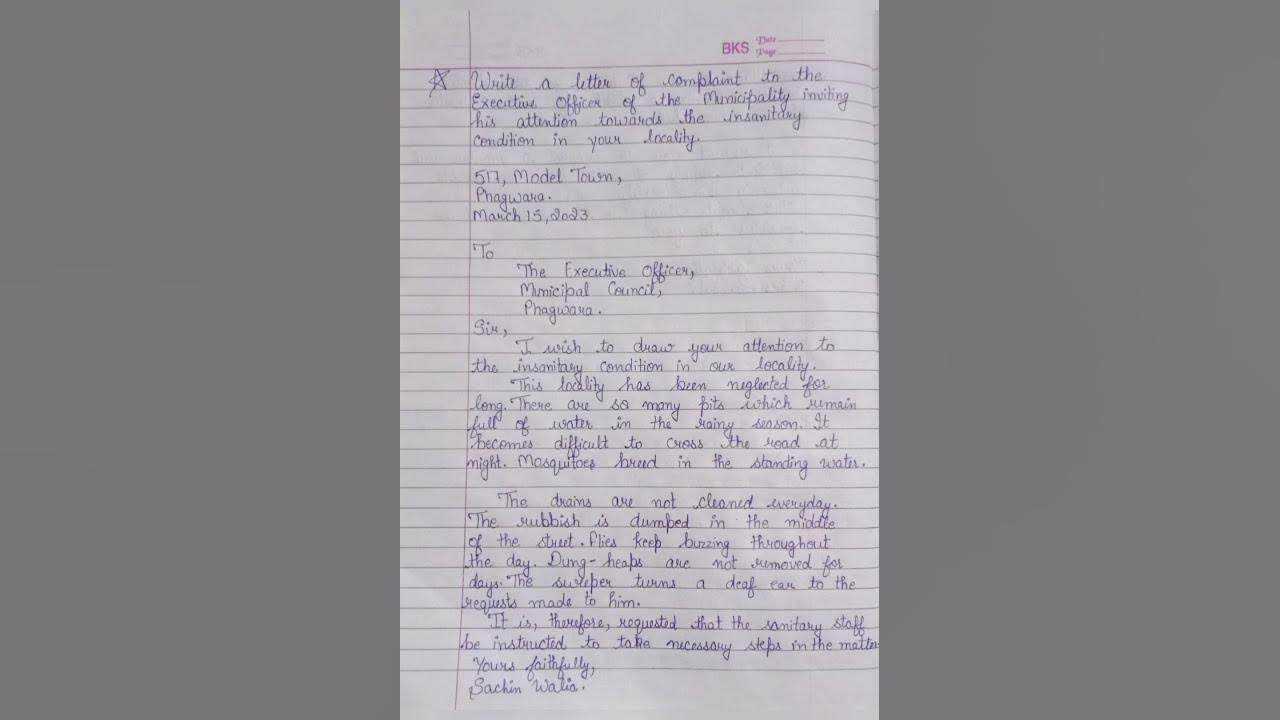 BKS Date
Page
Write a letter of complaint to the
Executive Officer of the Municipality inviting
his attention towards the insanitary
condition in your locality.
517, Model Town,
Phagwara.
March 15, 2023
To
The Executive Officer,
Municipal Council,
Phagwara.
Sir,
I wish to draw your attention to
the insanitary condition in our locality.
This locality has been neglected for
long. There are so many pits which remain
full of water in the rainy season. It
becomes difficult to cross the road at
night. Mosquitoes breed in the standing water.
The drains are not cleaned everyday.
The rubbish is dumped in the middle
of the street. Flies keep buzzing throughout
the day. Dung-heaps are not removed for
days. The sweeper turns a deaf ear to the
requests made to him.
It is, therefore, requested that the sanitary staff
be instructed to take necessary steps in the matter
Yours faithfully,
Sachin Walia.